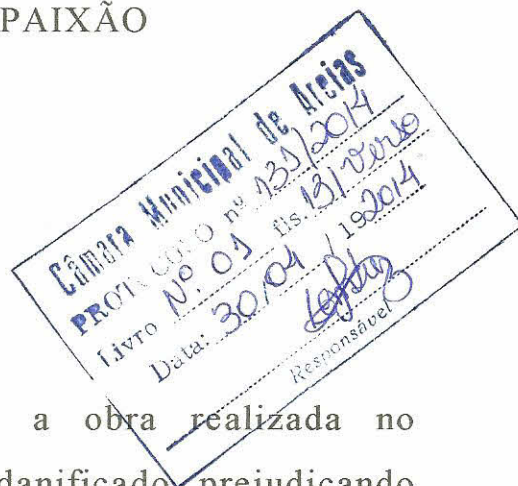 PAIXÃO
Câmara Municipal de Areias
PROTOCOLO nº 131/2014
Livro Nº. 01 fls. 131 verso
Data: 30/04/192014
Responsável
a obra realizada no
danificado prejudicando